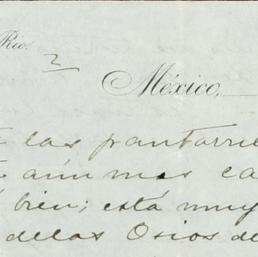 Rio.
2
México,
las pantorri
aún mas ca
bien; está muy
de las Osios de